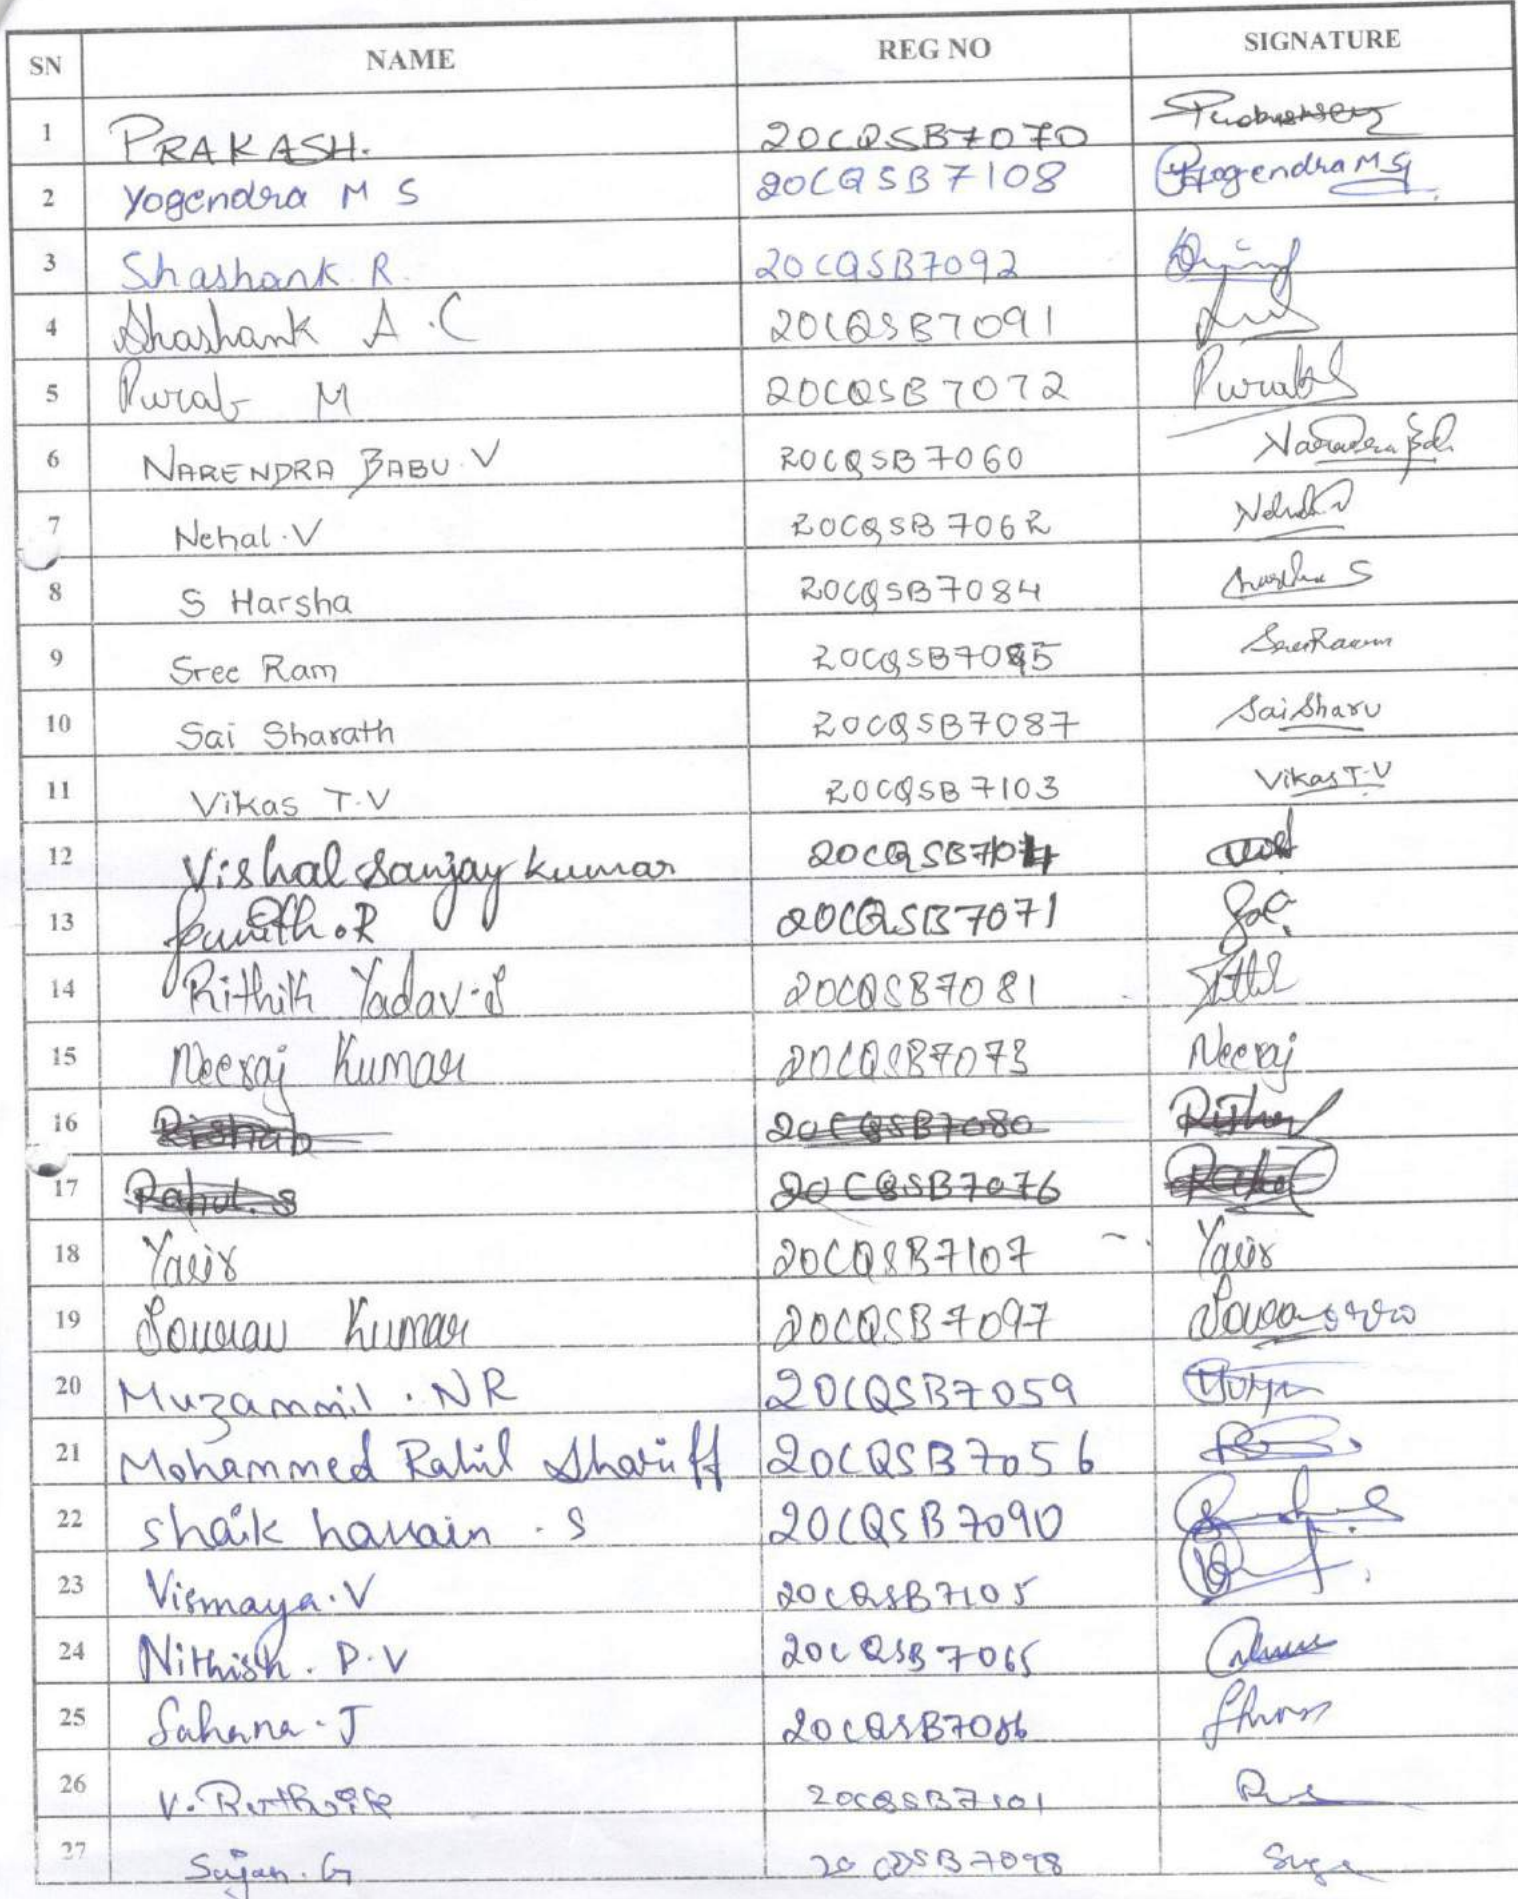 SN NAME REG NO SIGNATURE
1 PRAKASH. 20CQSB7070
2 Yogendra M S 20CQSB7108 Yogendra M S
3 Shashank R. 20CQSB7092
4 Shashank A.C 20CQSB7091
5 Purab M 20CQSB7072 Purab
6 NARENDRA BABU.V 20CQSB7060
7 Nehal.V 20CQSB7062
8 S Harsha 20CQSB7084 Harsha S
9 Sree Ram 20CQSB7085 SreeRam
10 Sai Sharath 20CQSB7087 Sai Sharu
11 Vikas T.V 20CQSB7103 Vikas T.V
12 Vishal Sanjay Kumar
13 Punith.R 20CQSB7071
14 Rithik Yadav.S 20CQSB7081
15 Neeraj Kumar 20CQSB7073 Neeraj
16 Rishab 20CQSB7080
17 Rahul.S 20CQSB7076
18 Yasir 20CQSB7107 Yasir
19 Sourav Kumar 20CQSB7097
20 Muzammil.NR 20CQSB7059
21 Mohammed Rahil Shariff 20CQSB7056
22 Shaik 20CQSB7090
23 Vismaya.V 20CQSB7105
24 Nithish.P.V 20CQSB7065
25 Sahana.J 20CQSB7086
26 V. Ruthvik 20CQSB7101
27 20CQSB7098